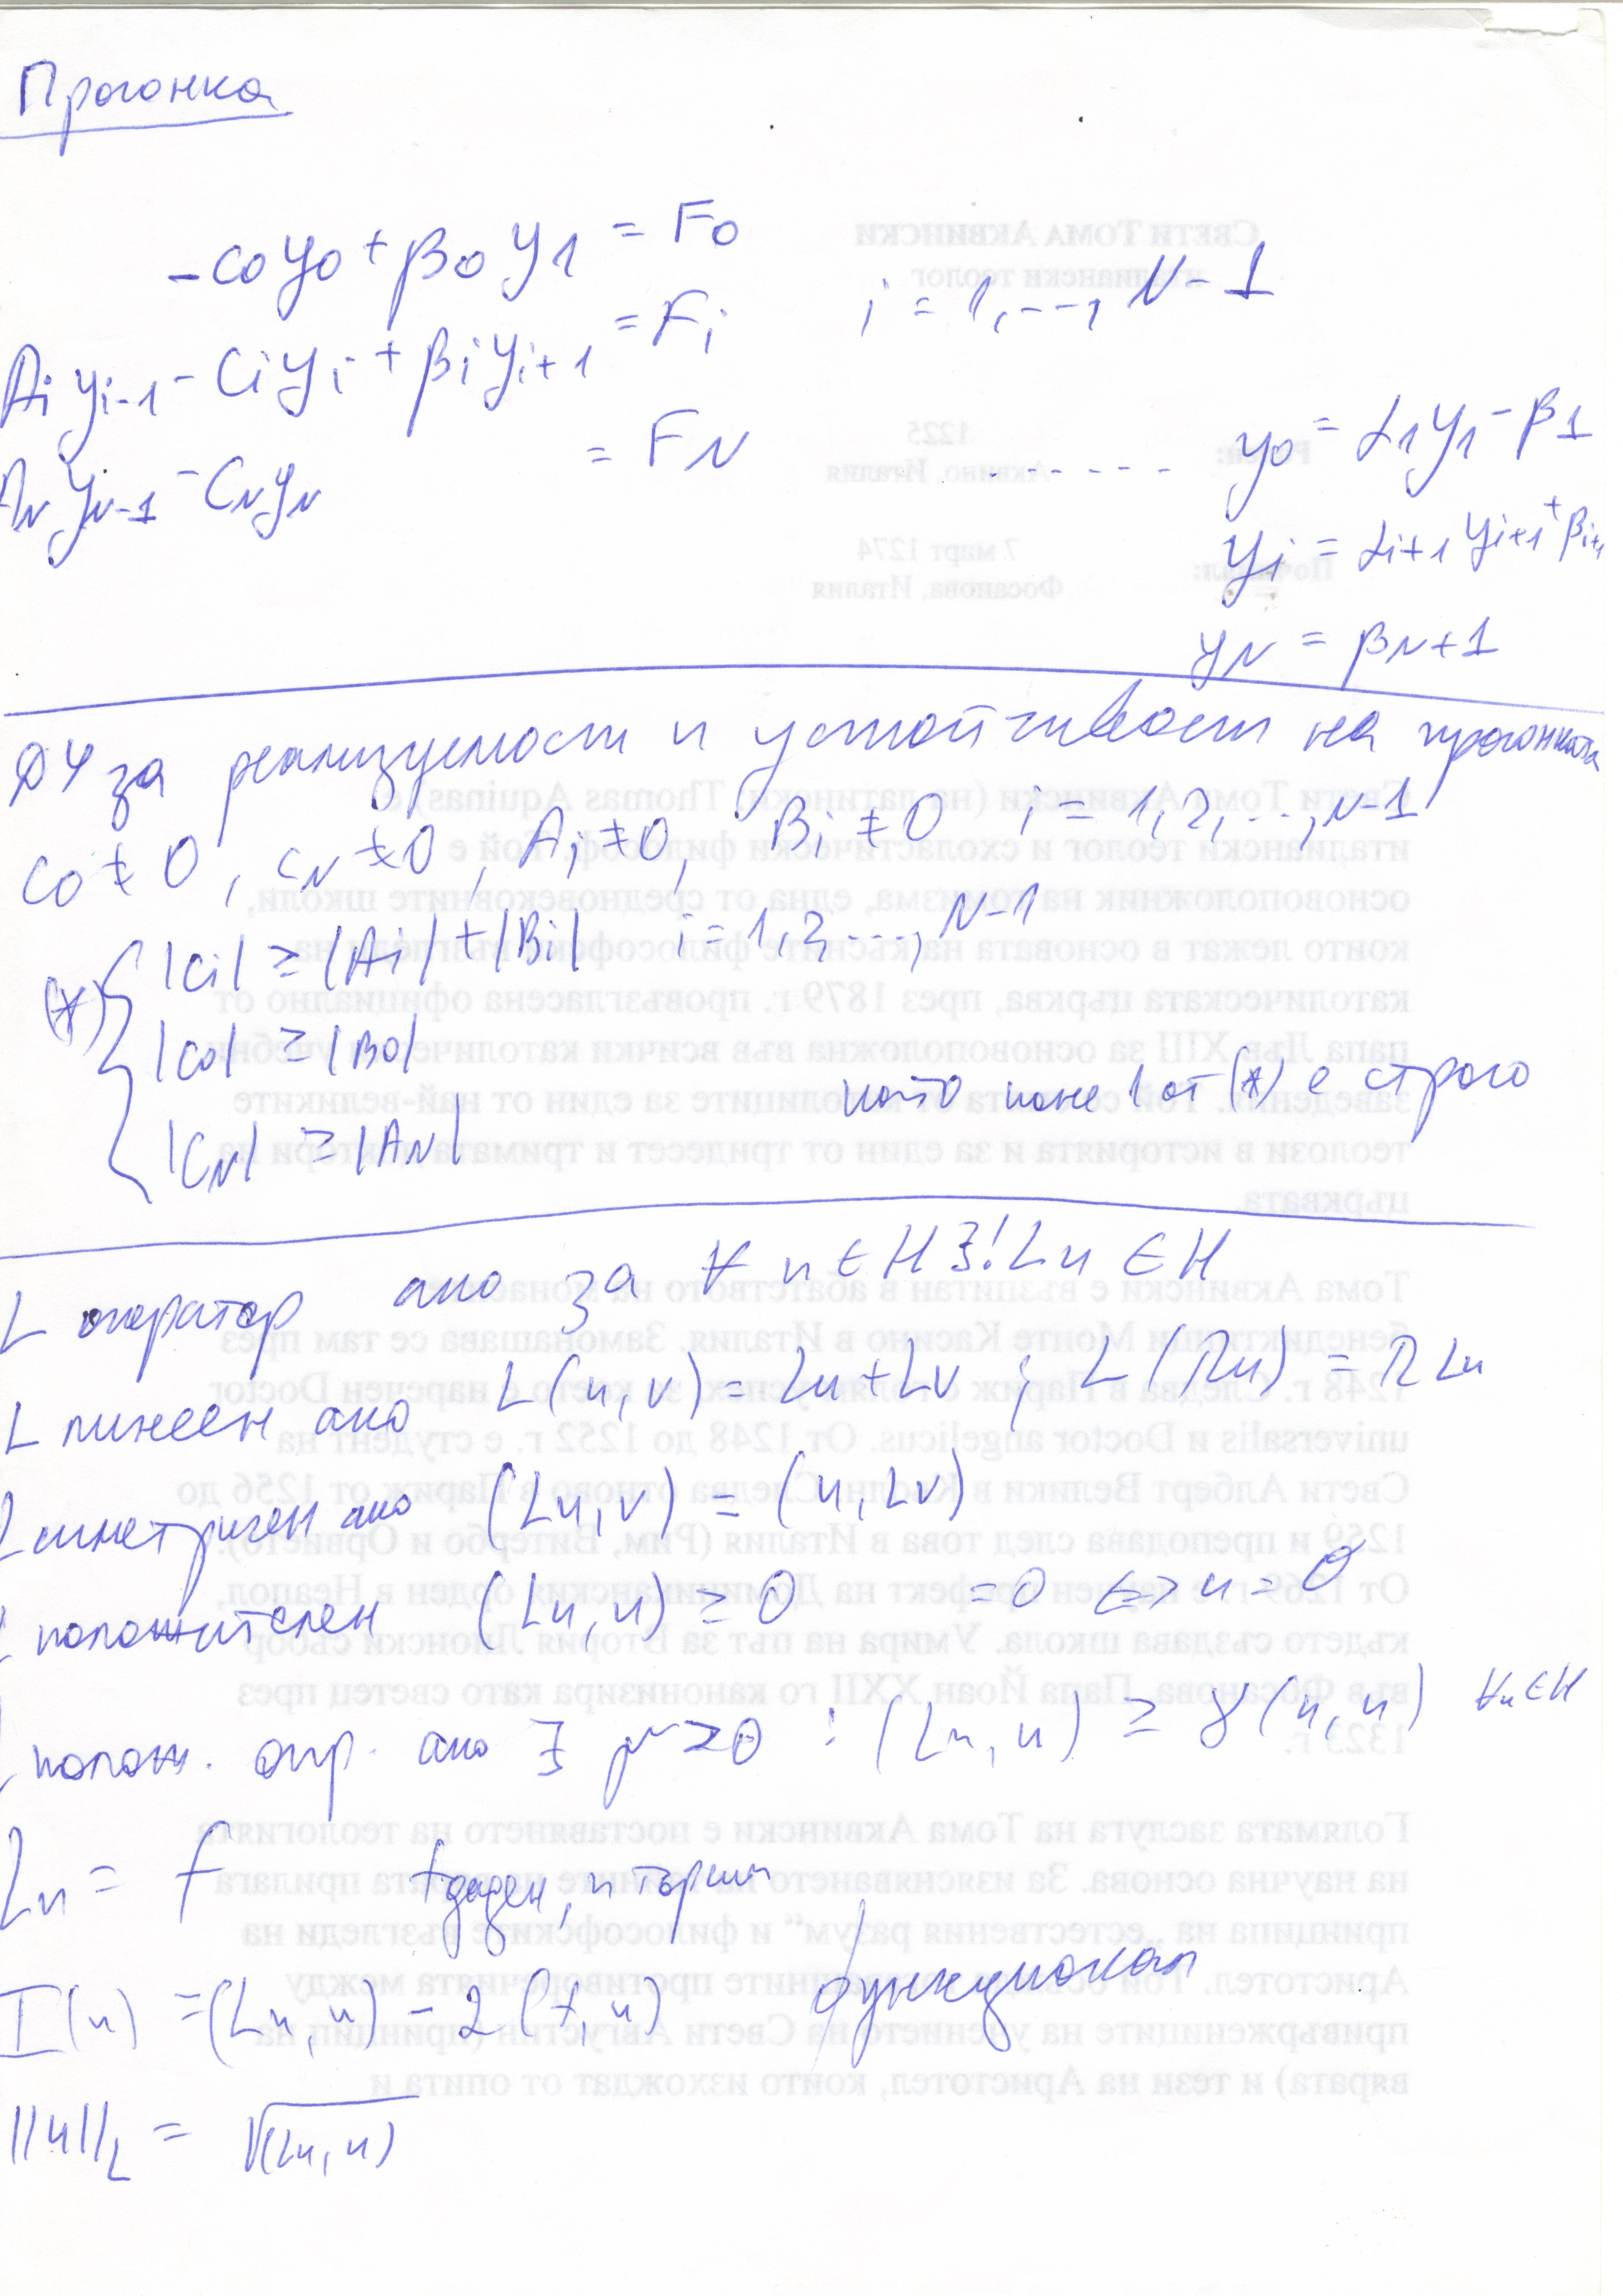 Прогонка
-c₀y₀ + β₀y₁ = F₀
Aᵢyᵢ₋₁ - Cᵢyᵢ + βᵢyᵢ₊₁ = Fᵢ i = 1,...,N-1
A_N y_N-1 - C_N y_N = F_N
....... y₀ = α₁y₁ - β₁
yᵢ = αᵢ₊₁yᵢ₊₁ + βᵢ₊₁
y_N = β_N+1
ДУ за реализуемост и устойчивост на прогонката
C₀ ≠ 0, C_N ≠ 0, Aᵢ ≠ 0, Bᵢ ≠ 0 i = 1,2,...,N-1
(*) { |Cᵢ| ≥ |Aᵢ| + |Bᵢ| i = 1,2,...,N-1
|C₀| ≥ |B₀|
който поне 1 от (*) е строго
|C_N| ≥ |A_N|
L оператор ако за ∀ u ∈ H ∃! Lu ∈ H
L линеен ако L(u,v) = Lu + Lv ; L(λu) = λLu
L симетричен ако (Lu,v) = (u,Lv)
L положителен (Lu,u) ≥ 0 =0 <=> u = 0
L полож. опр. ако ∃ γ>0 : (Lu,u) ≥ γ(u,u) ∀u∈H
Lu = f f даден, u търсим
I(u) = (Lu,u) - 2(f,u) функционал
||u||_L = √(Lu,u)
Свети Тома Аквински
италиански теолог
Роден: 1225
Аквино, Италия
Починал: 7 март 1274
Фосанова, Италия
Свети Тома Аквински (на латински: Thomas Aquinas) е
италиански теолог и схоластически философ. Той е
основоположник на томизма, една от средновековните школи,
които лежат в основата на късните философски възгледи на
католическата църква, през 1879 г. провъзгласена официално от
папа Лъв XIII за основоположна във всички католически учебни
заведения. Той се от католиците за един от най-великите
теолози в историята и за един от тридесет и тримата доктори на
църквата.
Тома Аквински е възпитан в абатството на монасите
бенедиктинци Монте Касино в Италия. Замонашава се там през
1248 г. Следва в Париж с голям успех, за което е наречен Doctor
universalis и Doctor angelicus. От 1248 до 1252 г. е студент на
Свети Алберт Велики в Кьолн. Следва отново в Париж от 1256 до
1259 и преподава след това в Италия (Рим, Витербо и Орвието).
От 1269 г. е научен префект на Доминиканския орден в Неапол,
където създава школа. Умира на път за Втория Лионски събор
във Фосанова. Папа Йоан XXII го канонизира като светец през
1323 г.
Голямата заслуга на Тома Аквински е поставянето на теологията
на научна основа. За изясняването на вярата прилага
принципа на „естествения разум“ и философските възгледи на
Аристотел. Той противоречията между
привържениците на учението на Свети Августин (принцип на
вярата) и тези на Аристотел, които изхождат от опита и